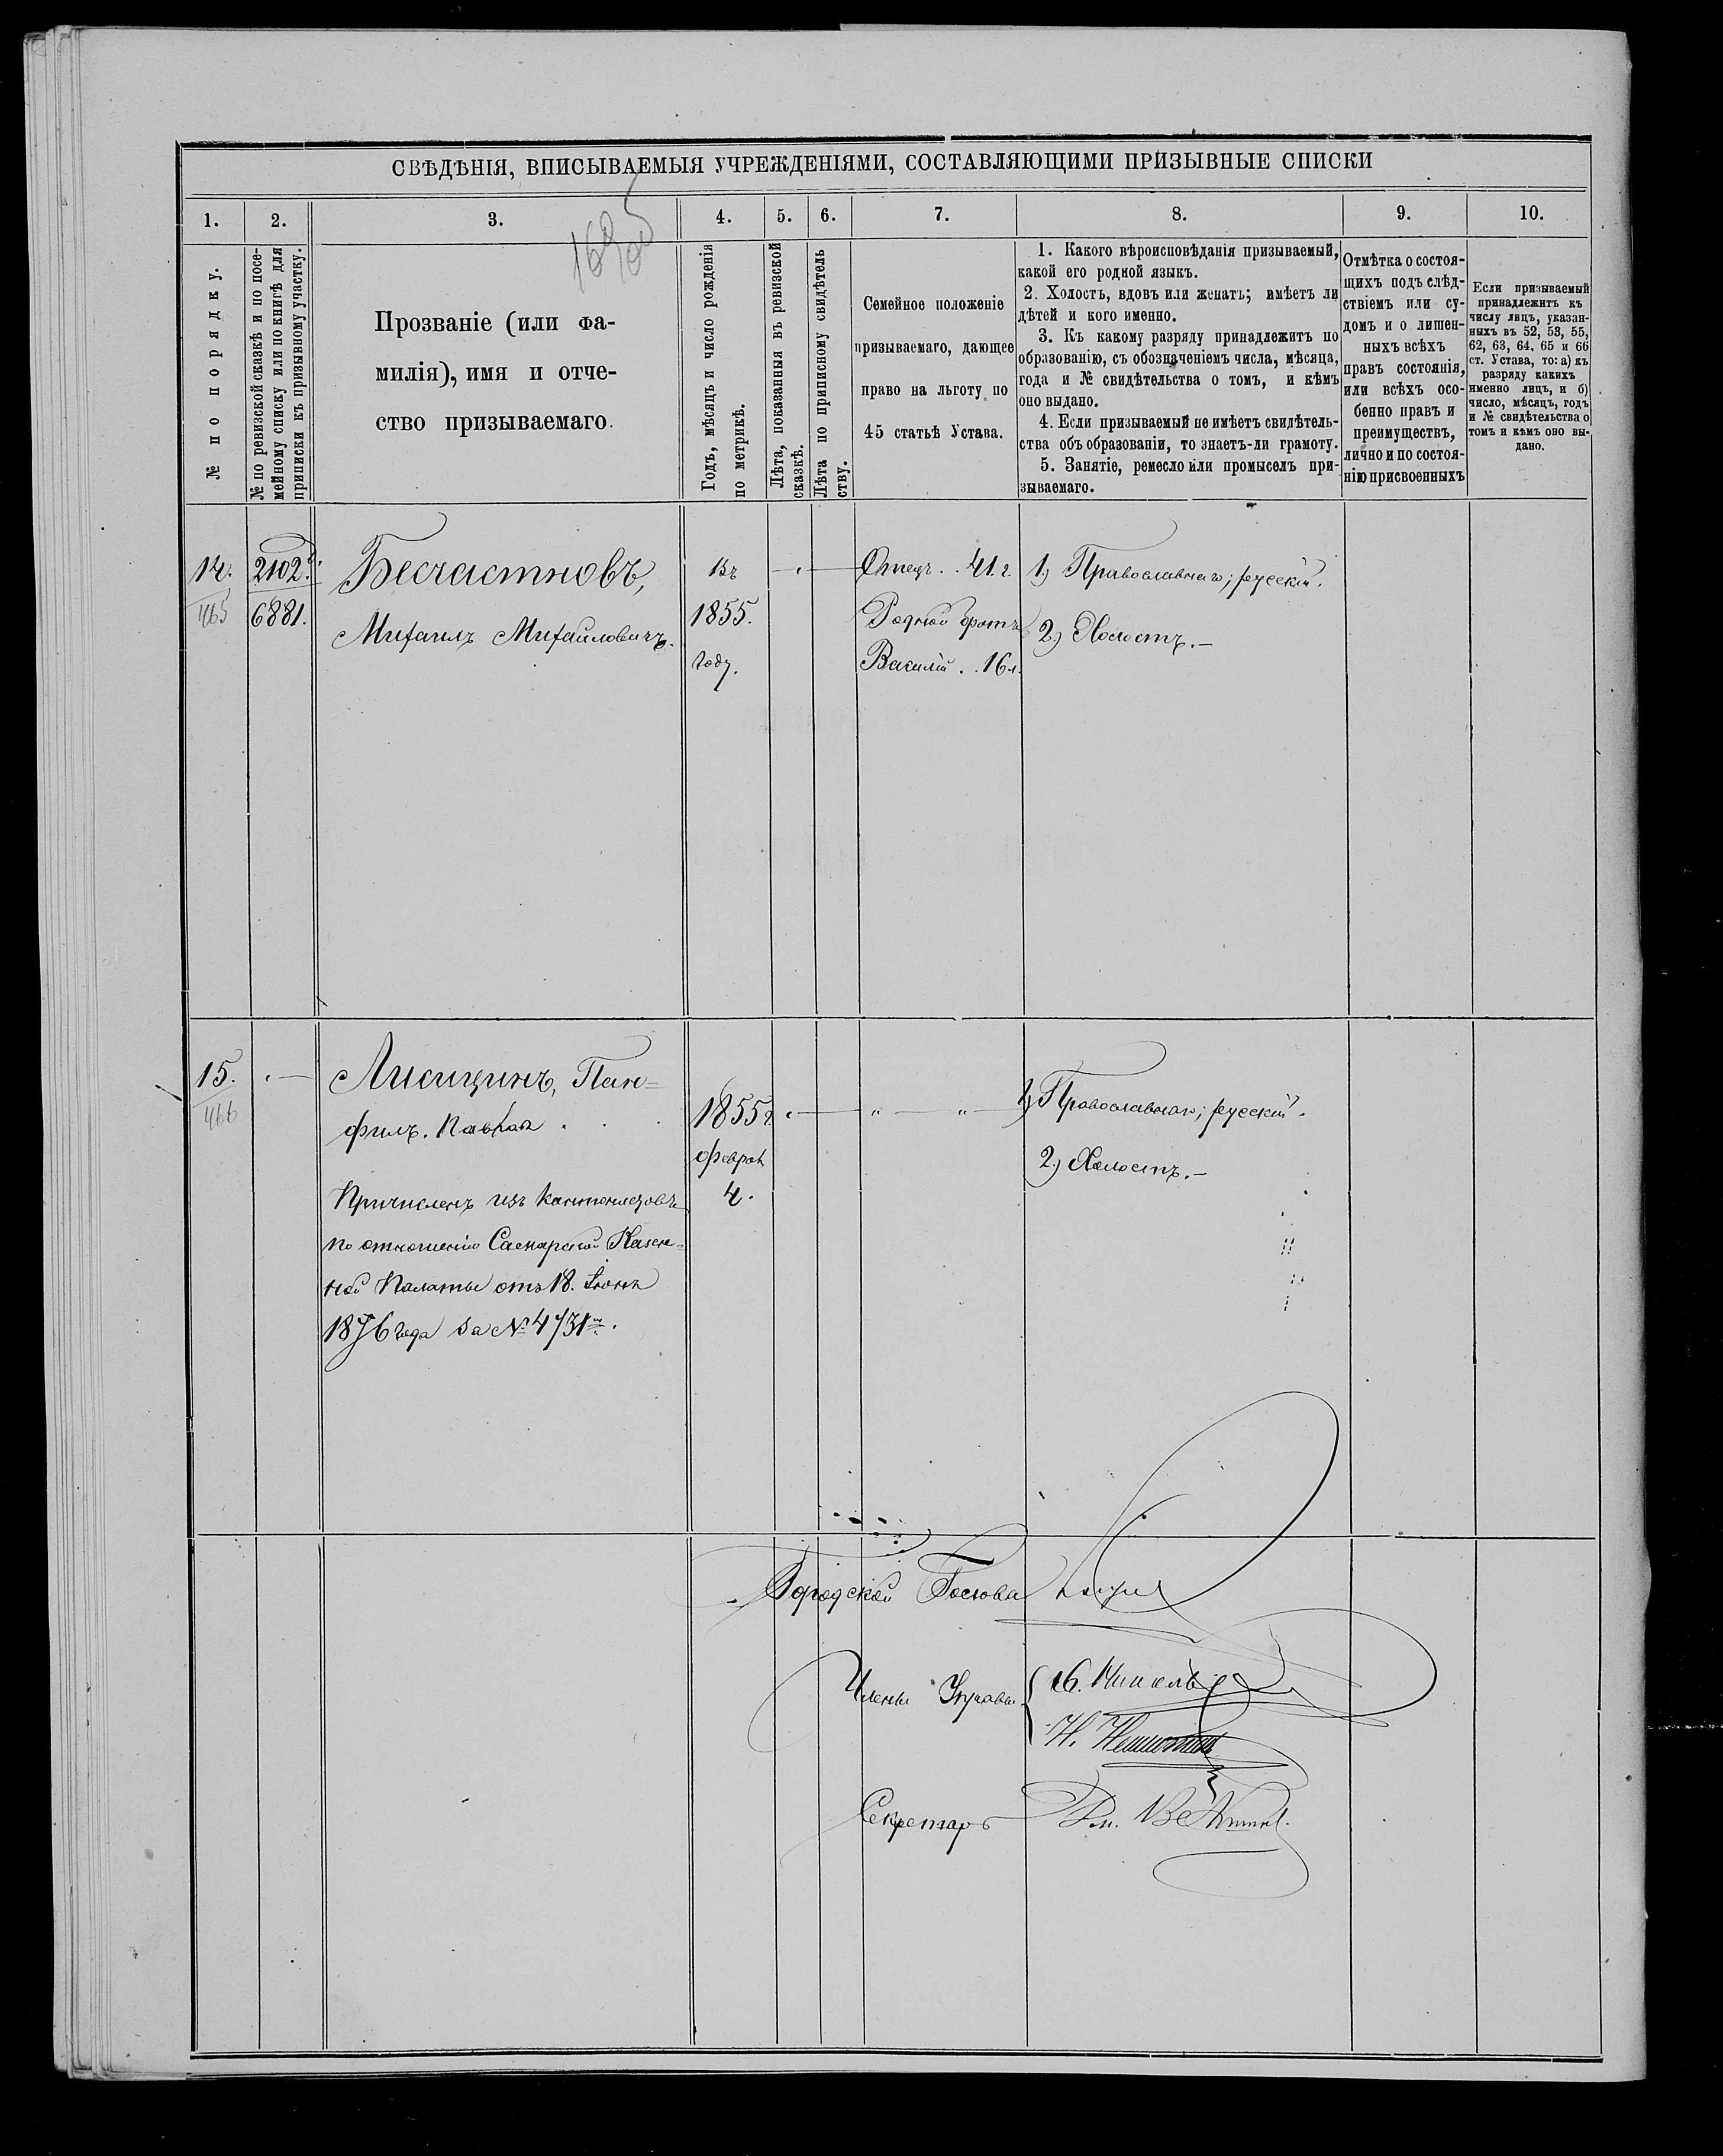 СВѢДѢНІЯ, ВПИСЫВАЕМЫЯ УЧРЕЖДЕНІЯМИ, СОСТАВЛЯЮЩИМИ ПРИЗЫВНЫЕ СПИСКИ
1. 2. 3. 4. 5. 6. 7. 8. 9. 10.
№ по порядку.
№ по ревизской сказкѣ и по посе-
мейному списку или по книгѣ для
приписки къ призывному участку.
Прозваніе (или фа-
милія), имя и отче-
ство призываемаго.
Годъ, мѣсяцъ и число рожденія
по метрикѣ.
Лѣта, показанныя въ ревизской
сказкѣ.
Лѣта по приписному свидѣтель
ству.
Семейное положеніе
призываемаго, дающее
право на льготу по
45 статьѣ Устава.
1. Какого вѣроисповѣданія призываемый,
какой его родной языкъ.
2. Холостъ, вдовъ или женатъ; имѣетъ ли
дѣтей и кого именно.
3. Къ какому разряду принадлежитъ по
образованію, съ обозначеніемъ числа, мѣсяца,
года и № свидѣтельства о томъ, и кѣмъ
оно выдано.
4. Если призываемый не имѣетъ свидѣтель-
ства объ образованіи, то знаетъ-ли грамоту.
5. Занятіе, ремесло или промыселъ при-
зываемаго.
Отмѣтка о состоя-
щихъ подъ слѣд-
ствіемъ или су-
домъ и о лишен-
ныхъ всѣхъ
правъ состоянія,
или всѣхъ осо-
бенно правъ и
преимуществъ,
лично и по состоя-
нію присвоенныхъ
Если призываемый
принадлежитъ къ
числу лицъ, указан-
ныхъ въ 52, 53, 55,
62, 63, 64, 65 и 66
ст. Устава, то: а) къ
разряду какихъ
именно лицъ, и б)
число, мѣсяцъ, годъ
и № свидѣтельства о
томъ и кѣмъ оно вы-
дано.
14.
465
2102
6881.
Бесчастновъ,
Михаилъ Михайловичъ.
Въ
1855.
году.
Отецъ . . 41. г.
Родной братъ
Василій . . 16 л.
1) Православнаго; русскій.
2) Холостъ.–
15.
466
Лисицинъ, Пан=
филъ. Павлов . . .
Причисленъ изъ кантонистовъ
по отношенію Самарской Казен-
ной Палаты отъ 18. Іюня
1876 года за № 4731м.
1855 г.
Феврал
4.
" "
1) Православнаго; русскій.
2) Холостъ.–
Городской Голова
Члены Управы
Н.
Секретарь